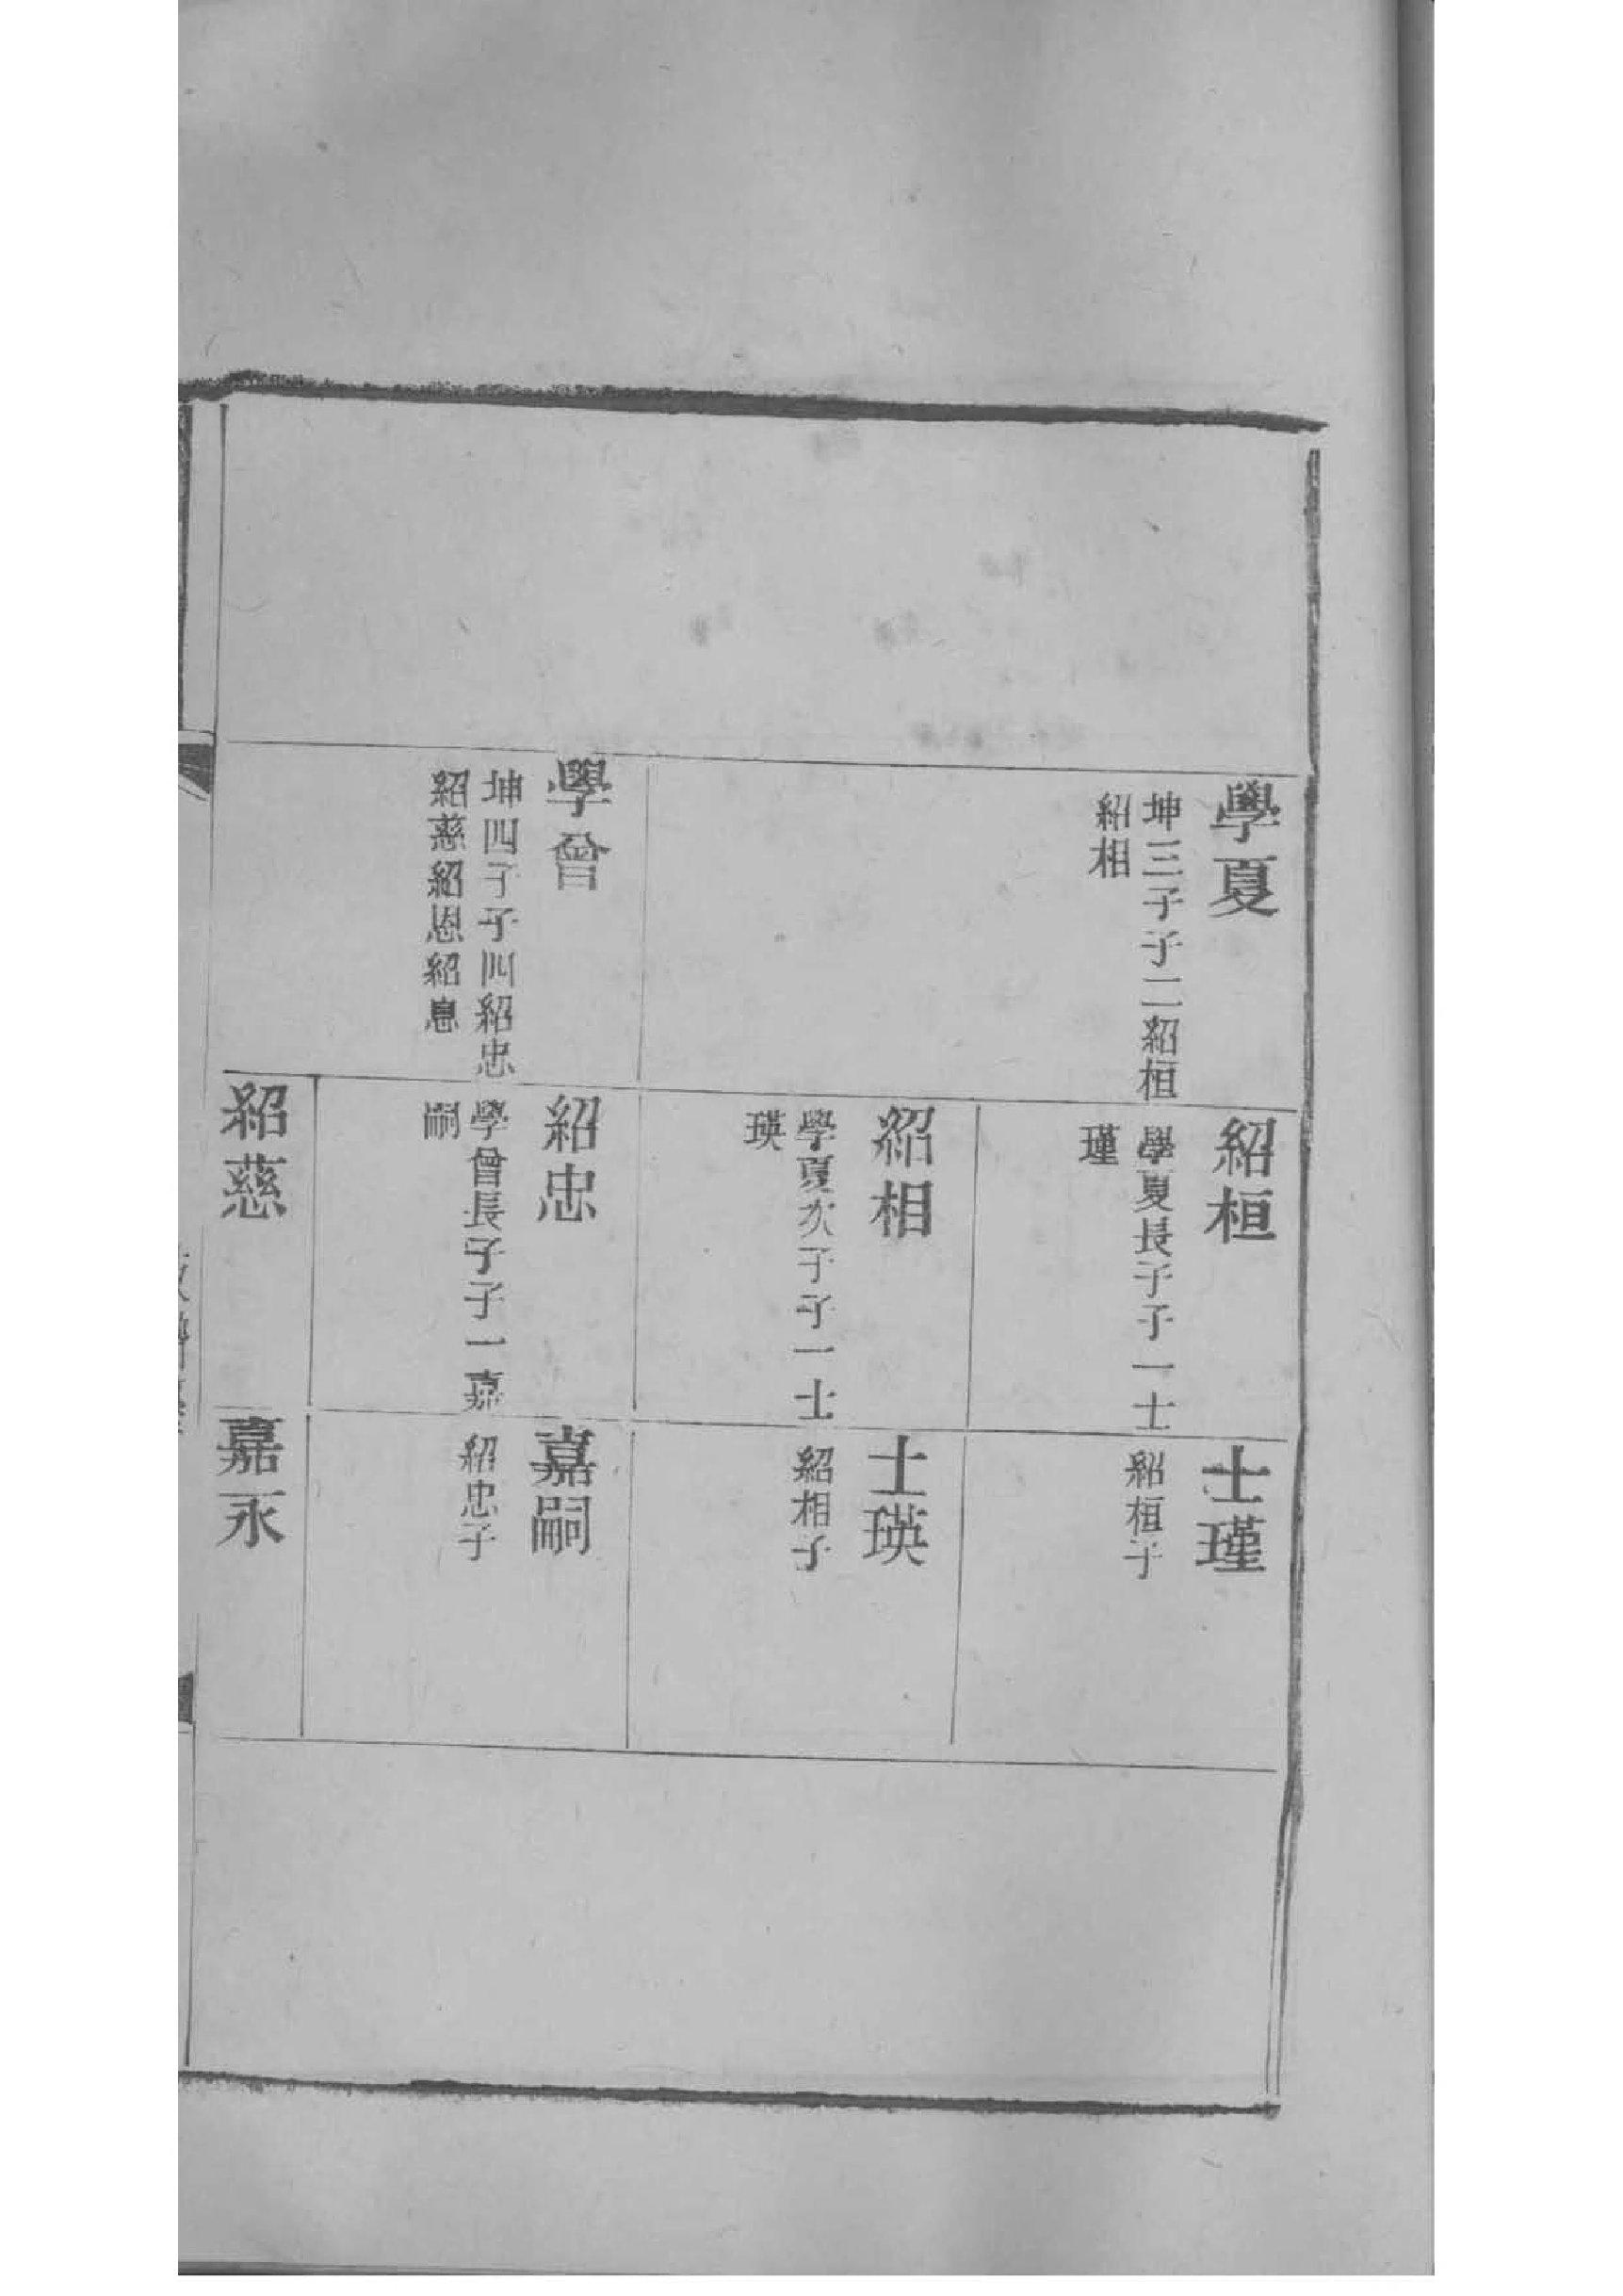 學夏
坤三子子二紹桓
紹相
學曾
坤四子子四紹忠
紹慈紹恩紹息
紹桓
學夏長子子一士
瑾
紹相
學夏次子子一士
瑛
紹忠
學曾長子子一嘉
嗣
紹慈
士瑾
紹桓子
士瑛
紹相子
嘉嗣
紹忠子
嘉永